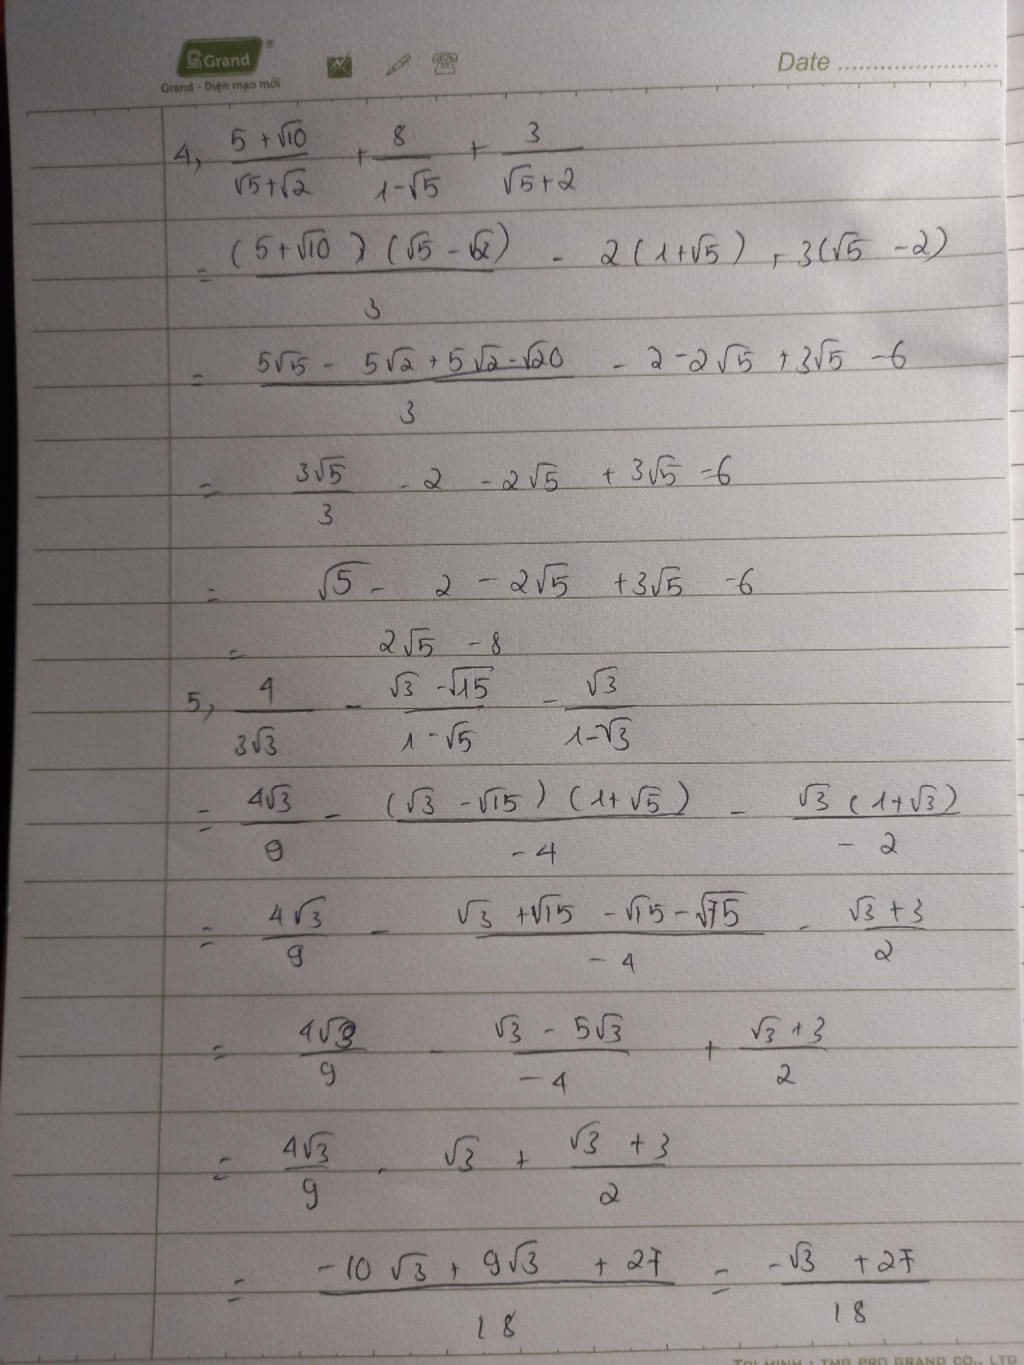 Grand®
Grand - Diện mạo mới
Date ........................
4, (5 + √10)/(√5+√2) + 8/(1-√5) + 3/(√5+2)
= (5+√10)(√5 - √2)/3 - 2(1+√5) + 3(√5 - 2)
= (5√5 - 5√2 + 5√2 - √20)/3 - 2 - 2√5 + 3√5 - 6
= 3√5/3 - 2 - 2√5 + 3√5 - 6
= √5 - 2 - 2√5 + 3√5 - 6
= 2√5 - 8
5, 4/(3√3) - (√3 - √15)/(1 - √5) - √3/(1-√3)
= 4√3/9 - (√3 - √15)(1+√5)/(-4) - √3(1+√3)/(-2)
= 4√3/9 - (√3 + √15 - √15 - √75)/(-4) - (√3 + 3)/2
= 4√3/9 - (√3 - 5√3)/(-4) + (√3 + 3)/2
= 4√3/9 - √3 + (√3 + 3)/2
= (-10√3 + 9√3 + 27)/18 = (-√3 + 27)/18
TRI MINH : TMD PRO BRAND CO., LTD